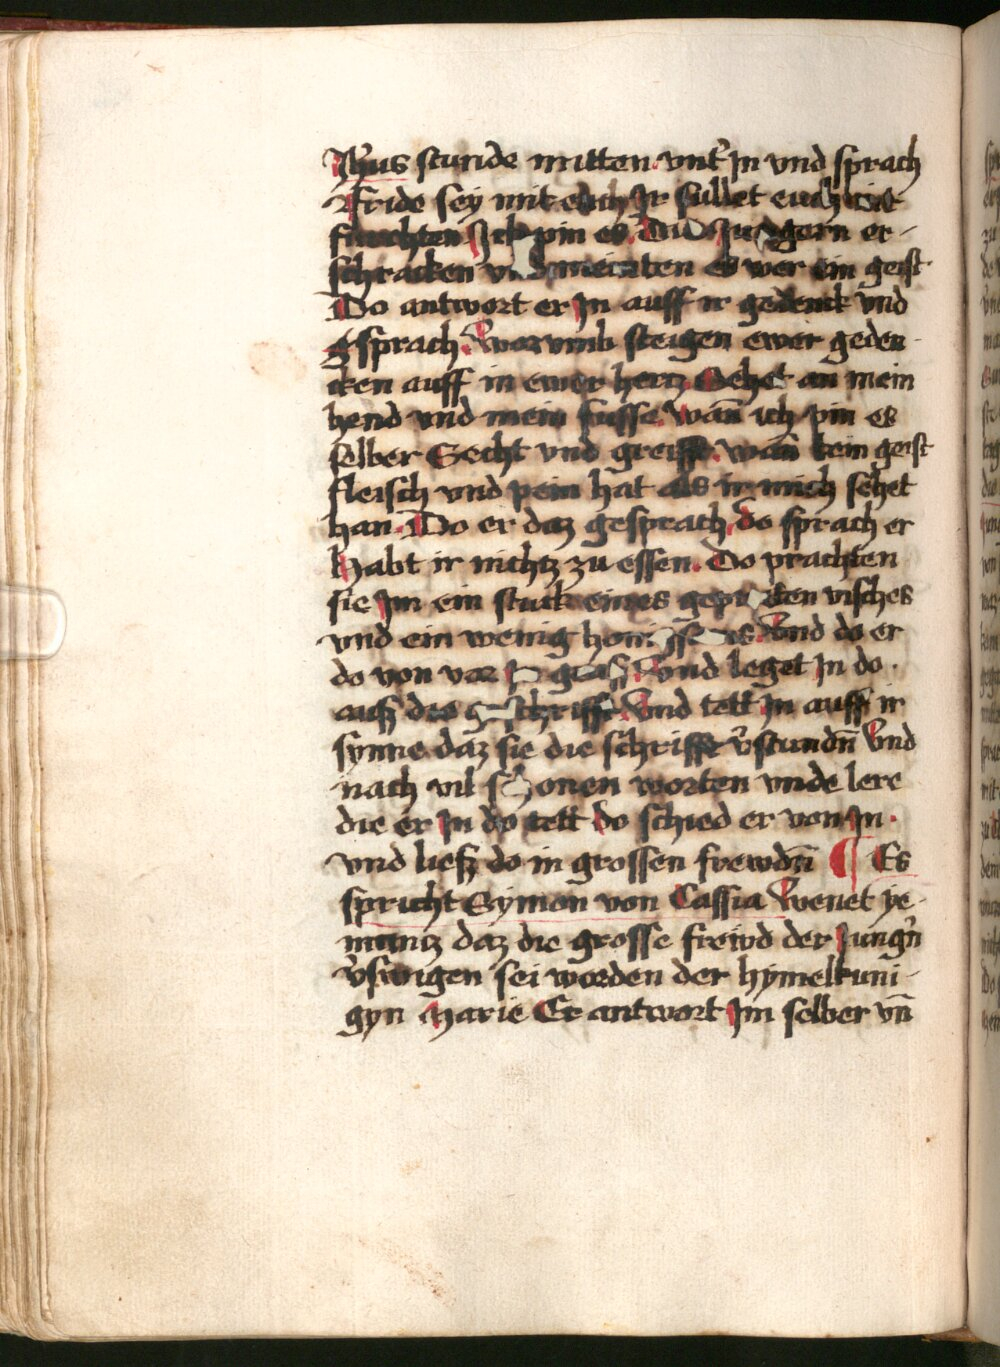 Jhus stunde mitten vnt' Jn vnd sprach
Fride sey mit euch Jr sullet euch nit
furchten Jch pin es. Die Jungern er-
schracken vnd meinten es wer ein geist
Do antwort er Jn auff ir gedenck vnd
sprach. Warvmb steigen ewer geden-
cken auff in ewer hertz Sehet an mein
hend vnd mein fusse. wan̄ ich pin es
selber Secht vnd greifft. wan̄ kein geist
fleisch vnd pein hat als ir mich sehet
han. Do er daz gesprach. do sprach er
Habt ir nichtz zu essen. Do prachten
sie Jm ein stuck eines gepraten visches
vnd ein wenig honi Vnd do er
do von vor gaß. Vnd leget Jn do
auß die geschrifft. Vnd tett Jn auff ir
synne daz sie die schrifft v'stundn̄ Vnd
nach vil schonen worten vnde lere
die er Jn do tett do schied er von Jn.
vnd ließ do in grossen frewdn̄ ¶ Es
spricht Symon von Cassia Wenet ye-
mantz daz die grosse frewd der Jungn̄
v'swigen sei worden der hymelkuni-
gyn Marie Er antwort Jm selber vn̄